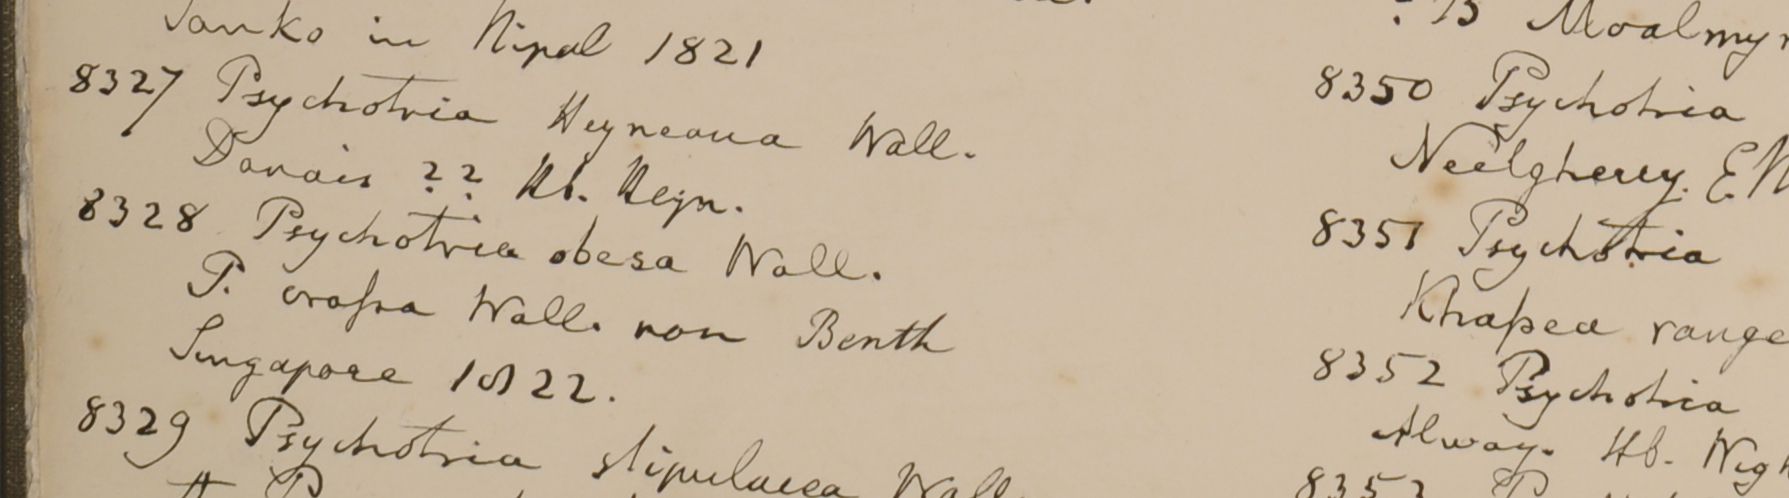 Sanko in Nipal 1821
8327 Psychotria Heyneana Wall.
Danais ?? Hb. Heyn.
8328 Psychotria obesa Wall.
P. crassa Wall. non Benth
Singapore 1822.
8329 Psychotria stipulacea Wall.
? B Moalmy
8350 Psychotria
Neelgherry. E
8351 Psychotria
Khasea range
8352 Psychotria
Alway. Hb. Wigh